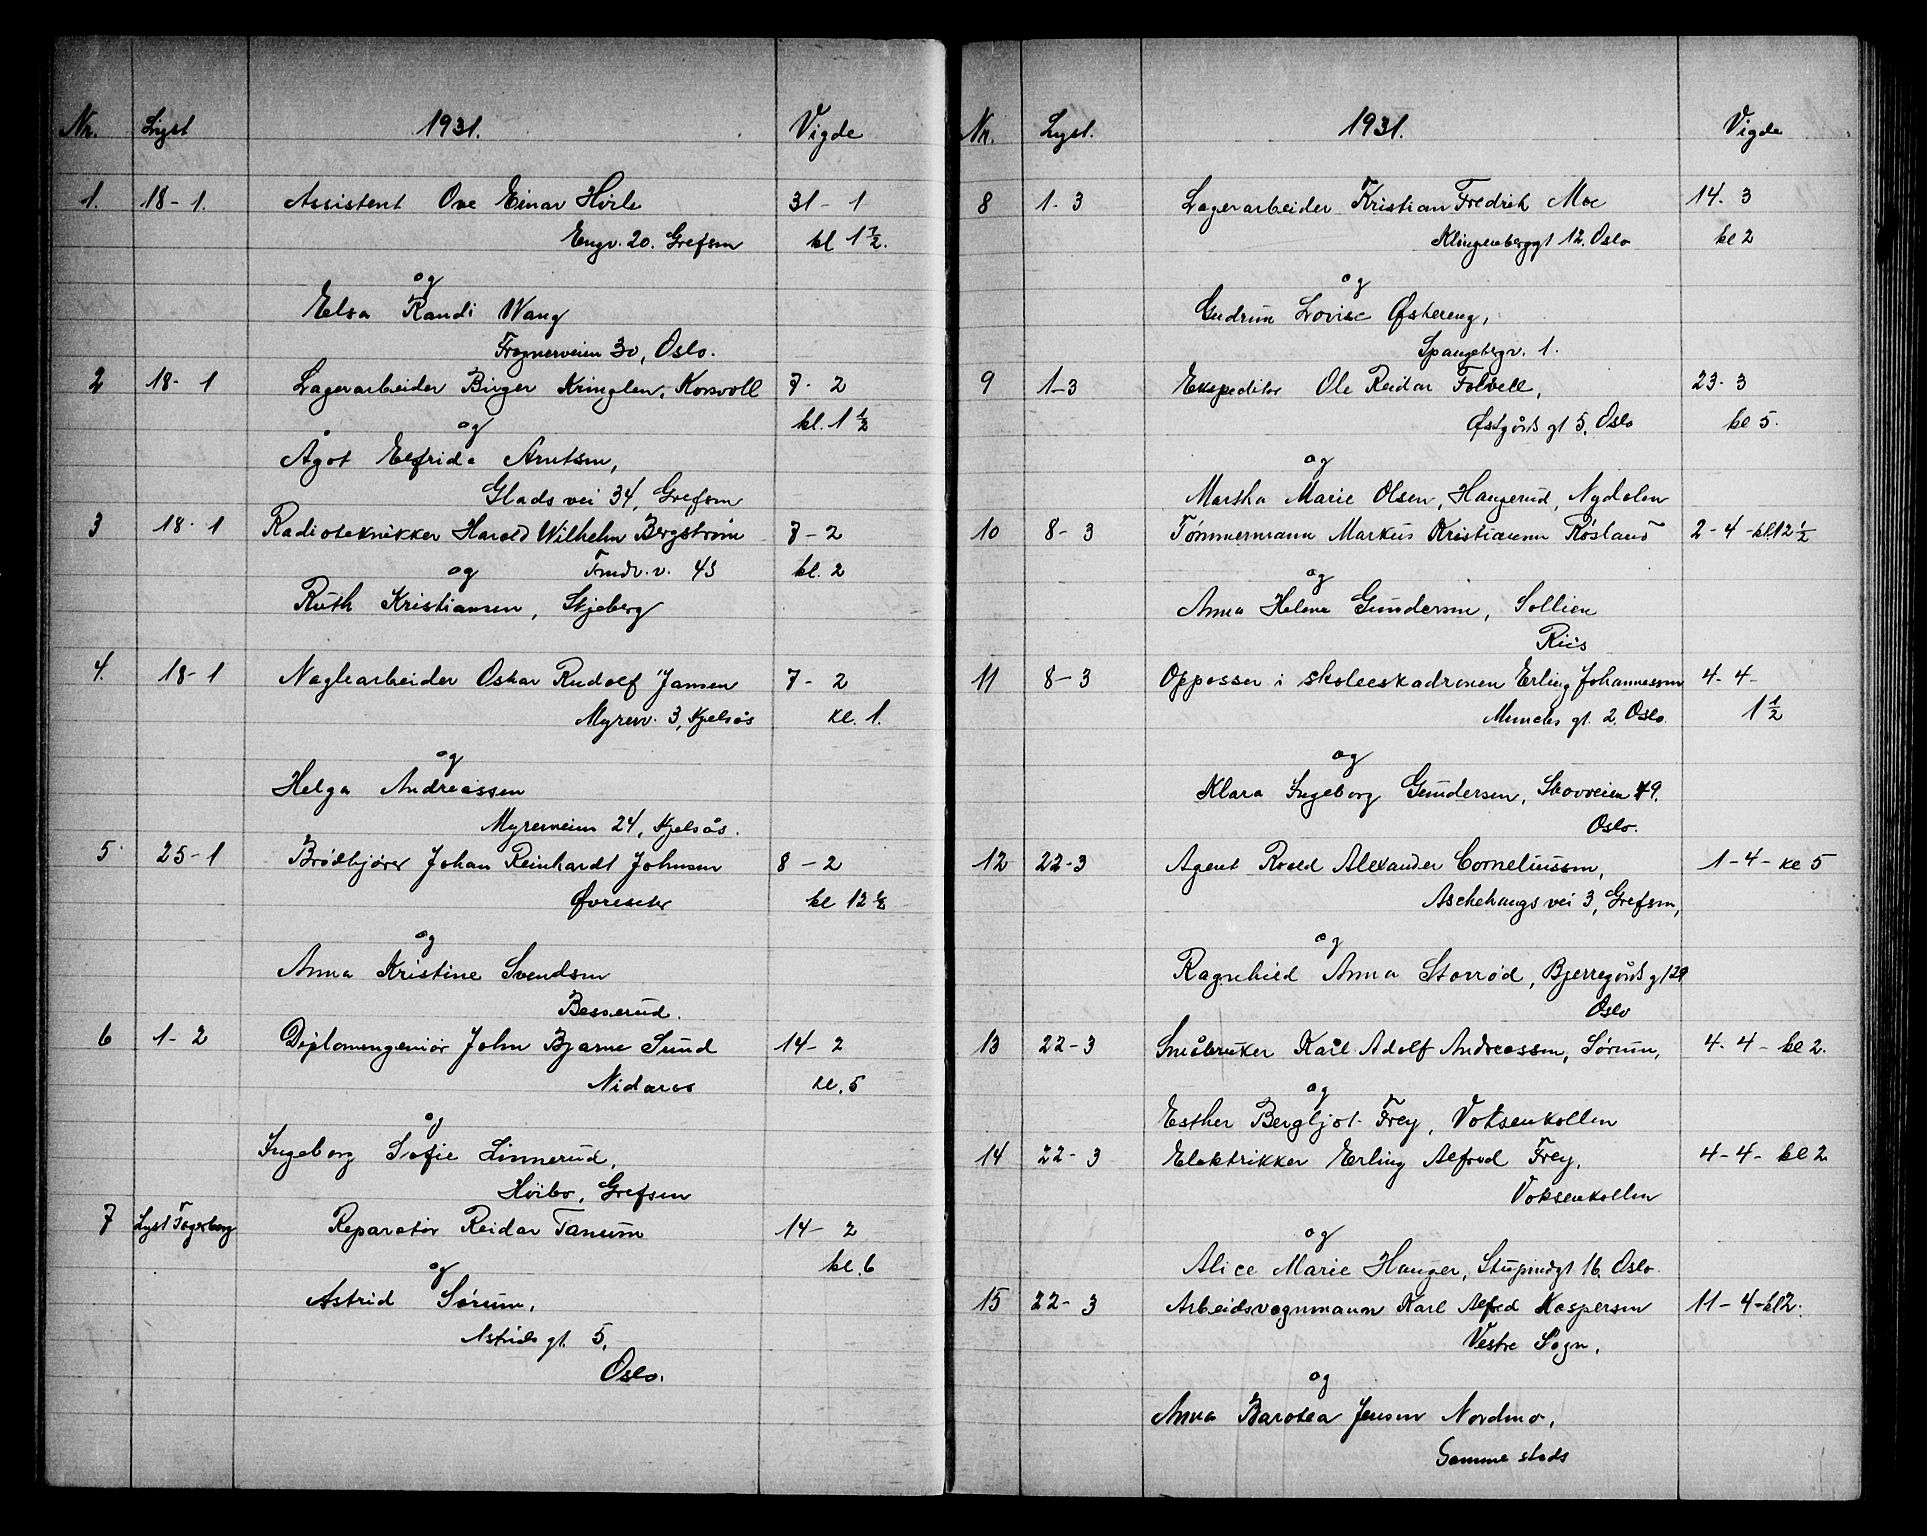 Nr. Lyst 1931. Vigde
1. 18-1. Assistent Ove Einar Hvile 31-1
Engv. 20. Grefsen kl 1 1/2.
og
Elsa Randi Wang
Frognerveien 30, Oslo.
2 18-1 Lagerarbeider Birger Kringlen, Korsvoll 7-2
kl. 1 1/2
og
Ågot Elfrida Arntsen,
Glads vei 34, Grefsen
3 18-1 Radioteknikker Harald Wilhelm Bergstrøm 7-2
Trondv. v. 43 kl. 2
og
Ruth Kristiansen, Skjeberg
4. 18-1 Naglearbeider Oskar Rudolf Jansen 7-2
Myrerv. 3, Kjelsås kl. 1.
og
Helga Andreassen
Myrerveien 24, Kjelsås.
5 25-1 Brødkjører Johan Reinhardt Johnsen 8-2
Øvreseter kl 12 1/2
og
Anna Kristine Svendsen
Besserud.
6 1-2 Diplomengeniør John Bjarne Sund 14-2
Nidaros kl. 5
og
Ingeborg Sofie Linnerud,
Høibo, Grefsen
7 Lyst Fagerborg Reparatør Reidar Tanum 14-2
kl. 6
og
Astrid Sørum,
Astrids gt. 5,
Oslo.
Nr. Lyst. 1931. Vigde
8 1-3 Lagerarbeider Kristian Fredrik Moe 14. 3
Klingenberggt 12. Oslo kl 2
og
Gudrun Lovise Østereng,
Spangbergv. 1.
9 1-3 Ekspeditør Ole Reidar Folvell, 23. 3
Østgårds gt 5, Oslo kl 5.
og
Martha Marie Olsen, Haugerud, Nydalen
10 8-3 Tømmermann Markus Kristiansen Røsland 2-4-kl 12 1/2
og
Anna Helene Gundersen, Sollien
Riis
11 8-3 Oppasser i skoleeskadronen Erling Johannessen 4-4-
Munchs gt. 2, Oslo. 1 1/2
og
Klara Ingeborg Gundersen, Skovveien 49.
Oslo.
12 22-3 Agent Roald Alexander Corneliussen, 1-4-kl 5
Aschehougs vei 3, Grefsen,
og
Ragnhild Anna Storrød, Bjerregårds gt 29
Oslo
13 22-3 Småbruker Karl Adolf Andreassen, Sørum, 4-4-kl 2.
og
Esther Bergljot Frey, Voksenkollen
14 22-3 Elektrikker Erling Alfred Frey, 4-4-kl 2
Voksenkollen
og
Alice Marie Hauger, Stupindgt 16, Oslo.
15 22-3 Arbeidsvognmann Karl Alfred Kaspersen 11-4-kl 2.
Vestre Sogn,
og
Anna Barotea Jensen Nordmo,
Somme stads